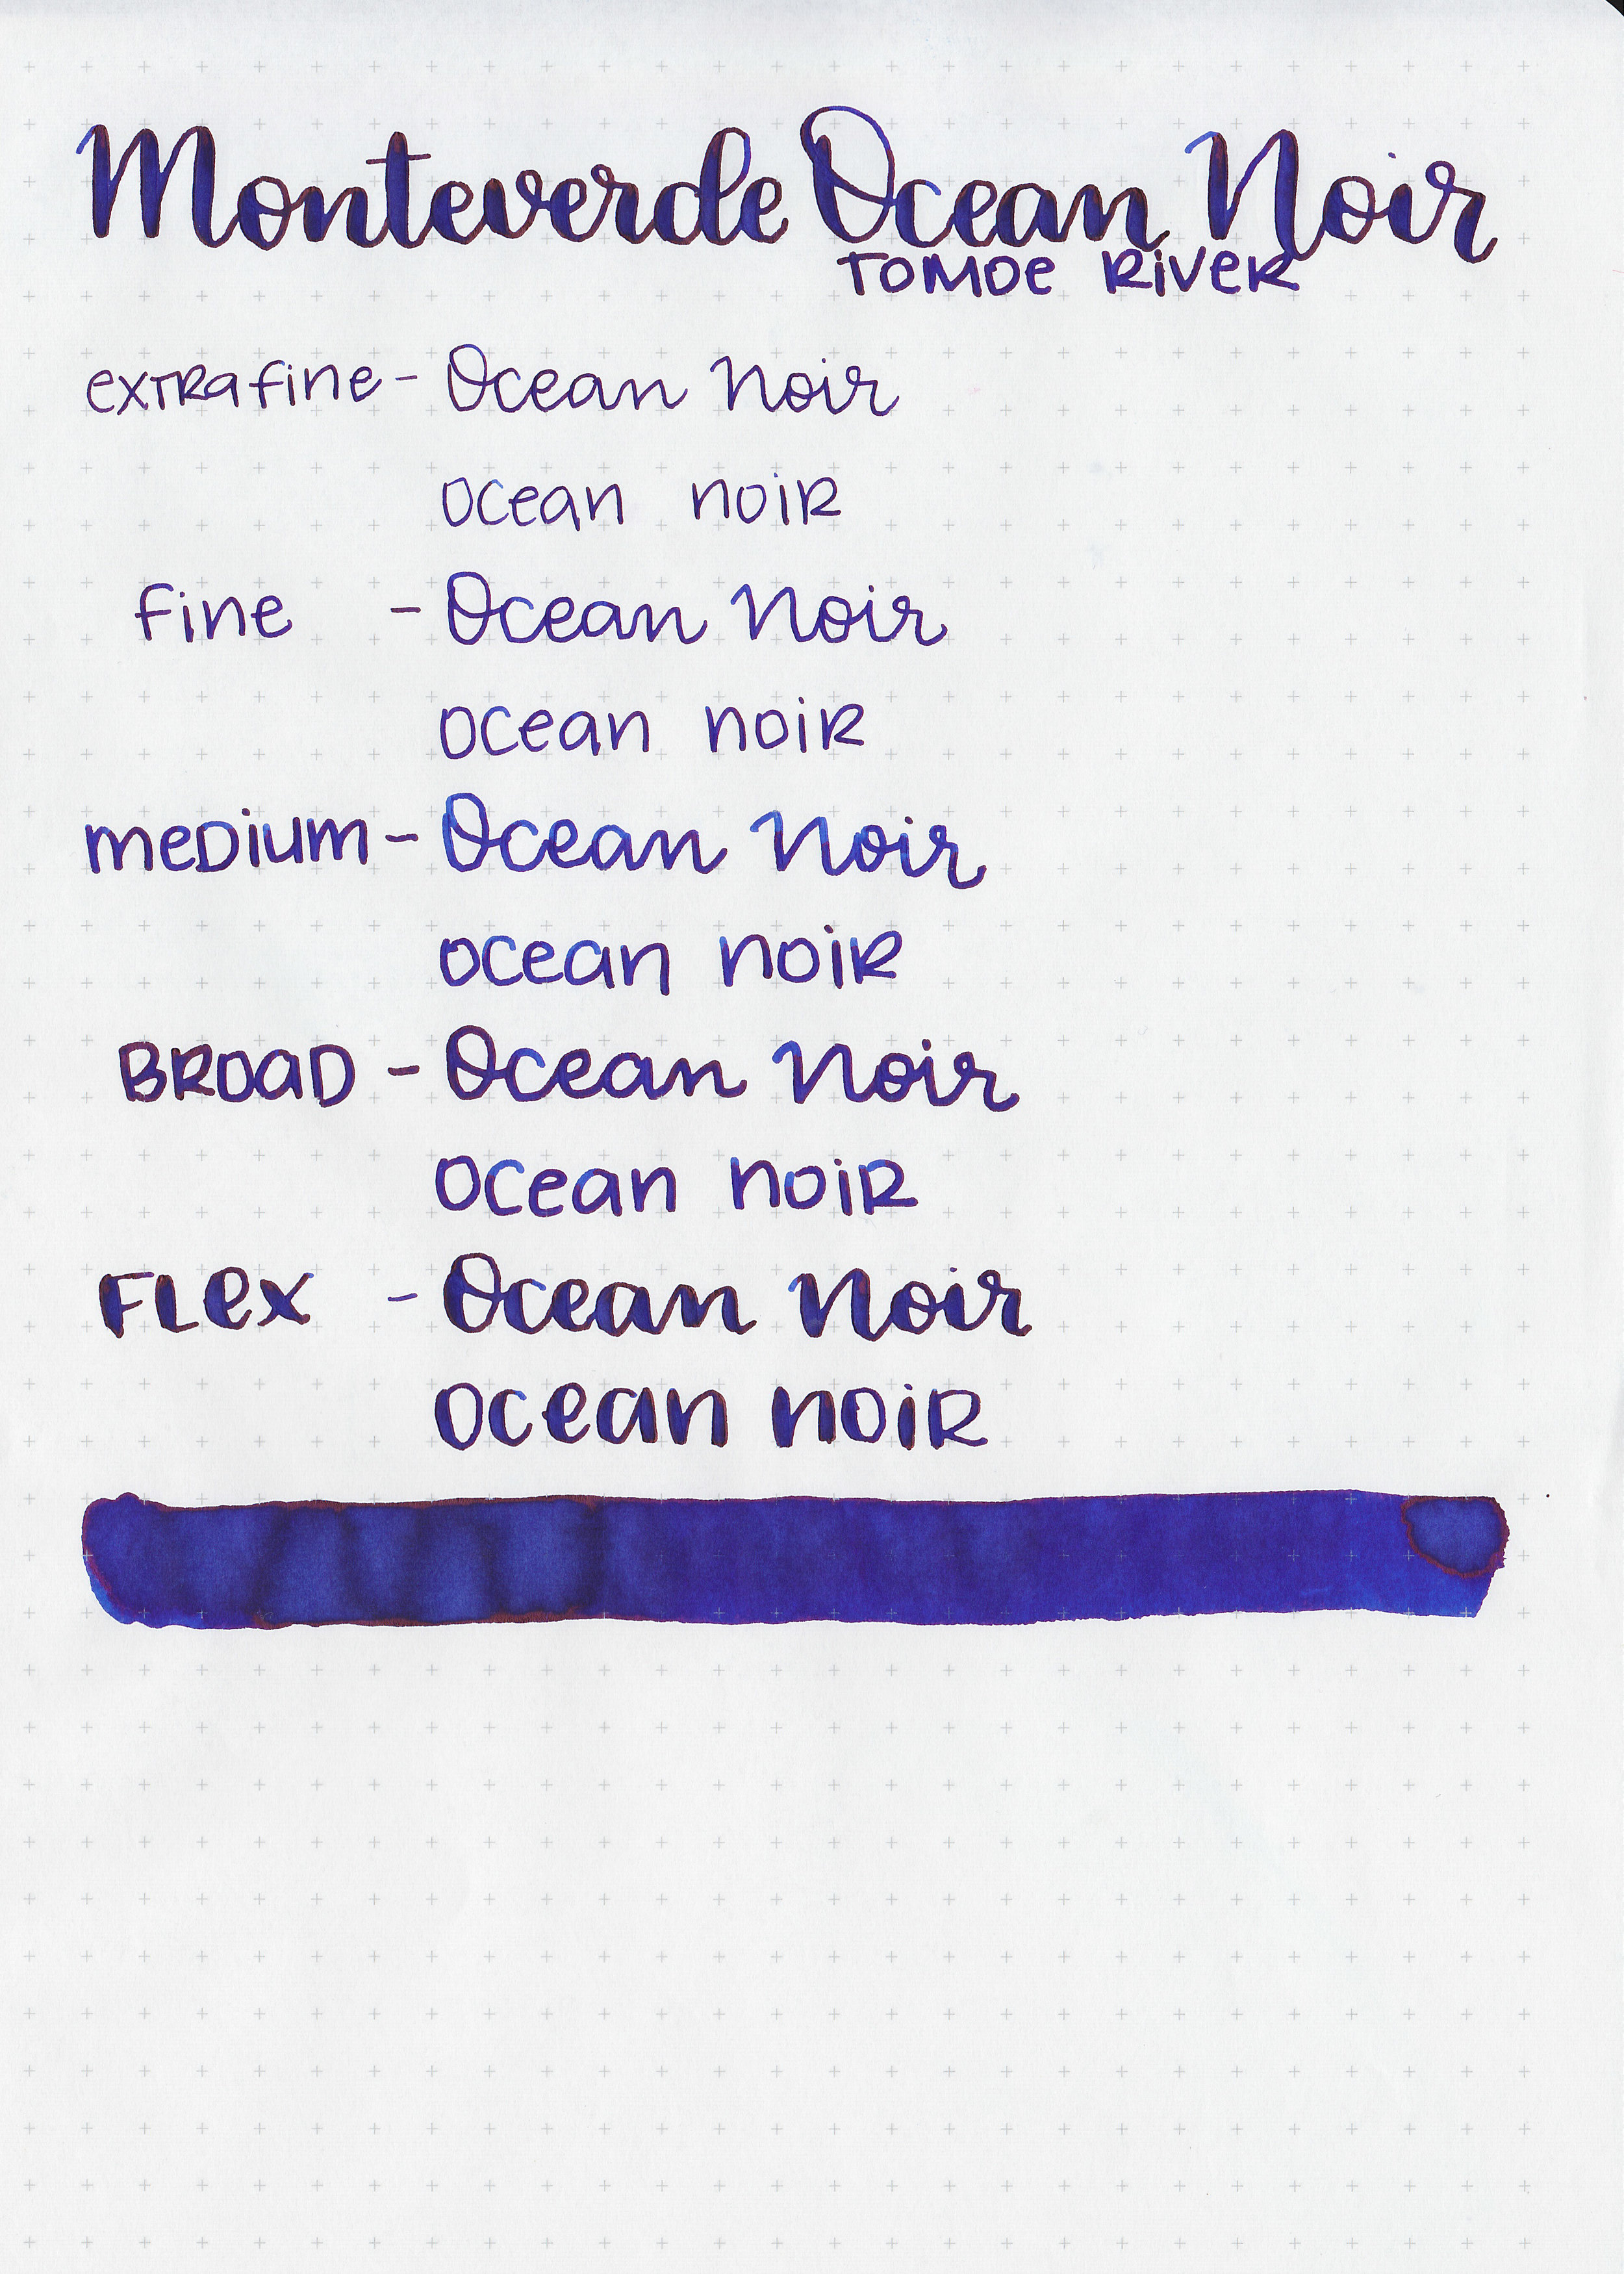 Monteverde Ocean Noir
TOMOe RiveR
exTRafine - Ocean Noir
ocean noiR
fine - Ocean Noir
ocean noiR
meDium - Ocean Noir
ocean noiR
BROaD - Ocean Noir
ocean noiR
FLex - Ocean Noir
ocean noiR